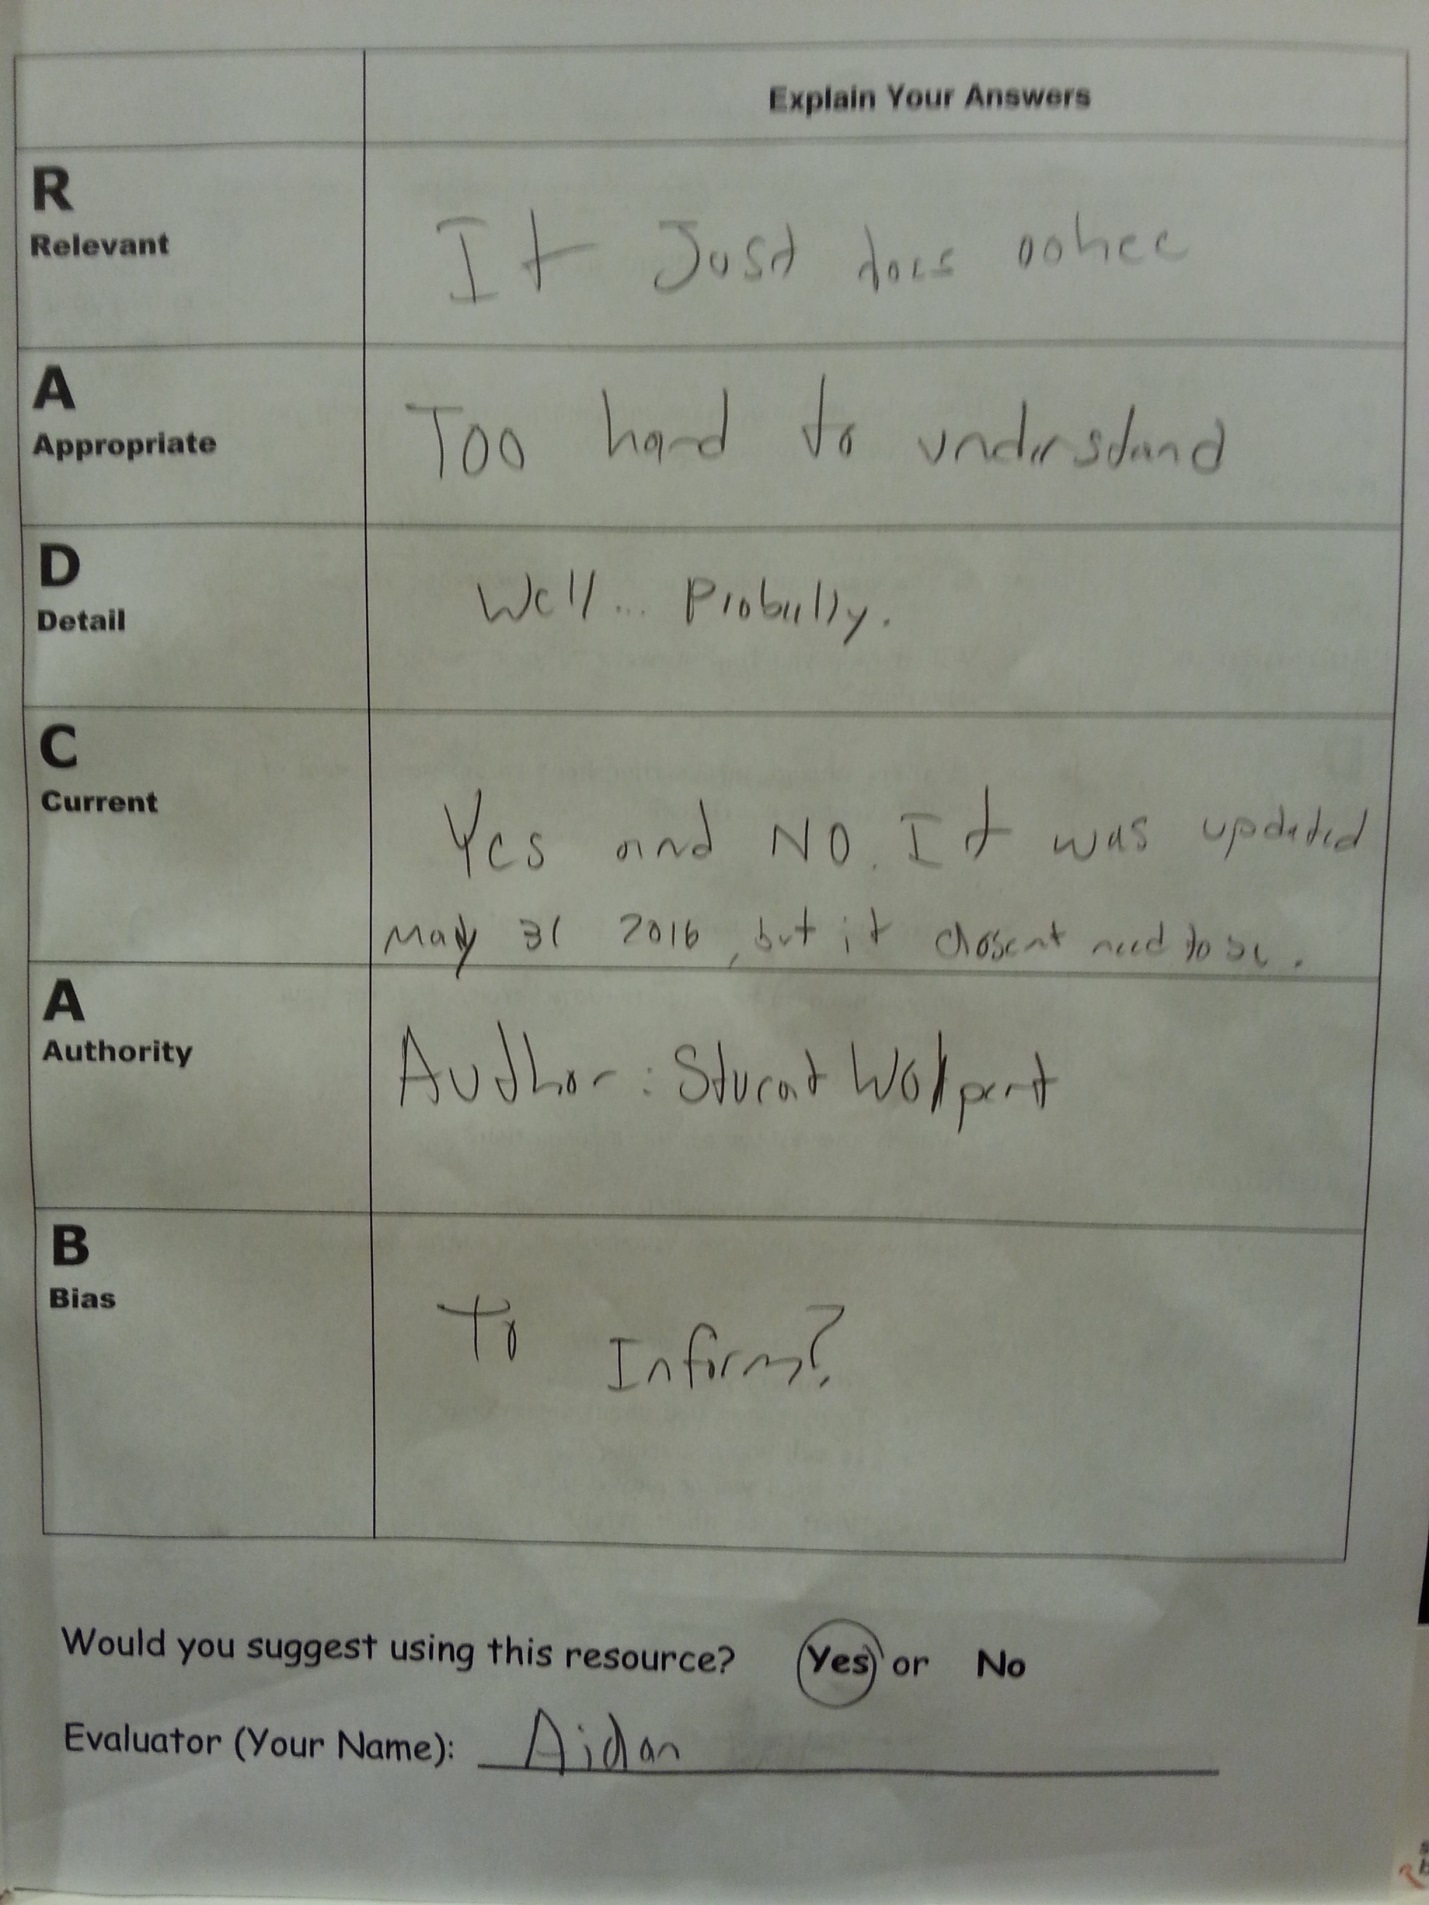 Explain Your Answers
R
Relevant
It Just does
A
Appropriate
Too hard to understand
D
Detail
Well... Probully.
C
Current
Yes and NO. It was updated
May 31 2016, but it dosent need to be.
A
Authority
Author: Sturat Wolpert
B
Bias
To Inform?
Would you suggest using this resource? Yes or No
Evaluator (Your Name): Aidan